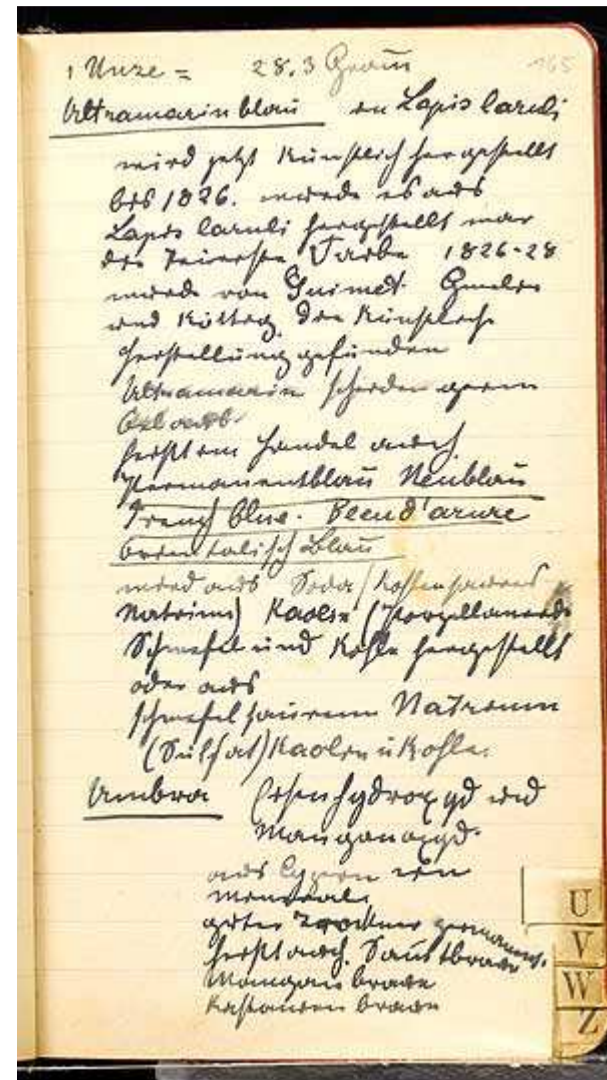 1 Unze = 28.3 Gram̄ 165
Ultramarinblau Lapis lazuli
wird jetzt künstlich hergestellt
bis 1826. wurde es aus
Lapis lazuli hergestellt war
die Teuerste Farbe 1826-28
wurde von Guimet Gmelin
und Köttig die künstliche
Herstellung gefunden
Ultramarin scheiden gern
Oel aus.
heißt im Handel auch
Permanentblau Neublau
French blue. Bleu d'azure
Orientalisch Blau
wird aus Soda (Kohlensaures
Natrium) Kaolin (Porzellanerde
Schwefel und Kohle hergestellt
oder aus
schwefelsaurem Natrium
(Sulfat) Kaolin u Kohle.
Umbra Eisenhydroxyd und
Manganoxyd.
aus Cypern ein
Mineral
guter Trockner permanent.
heißt auch Samtbraun
Manganbraun
Kastanienbraun
U
V
W
Z